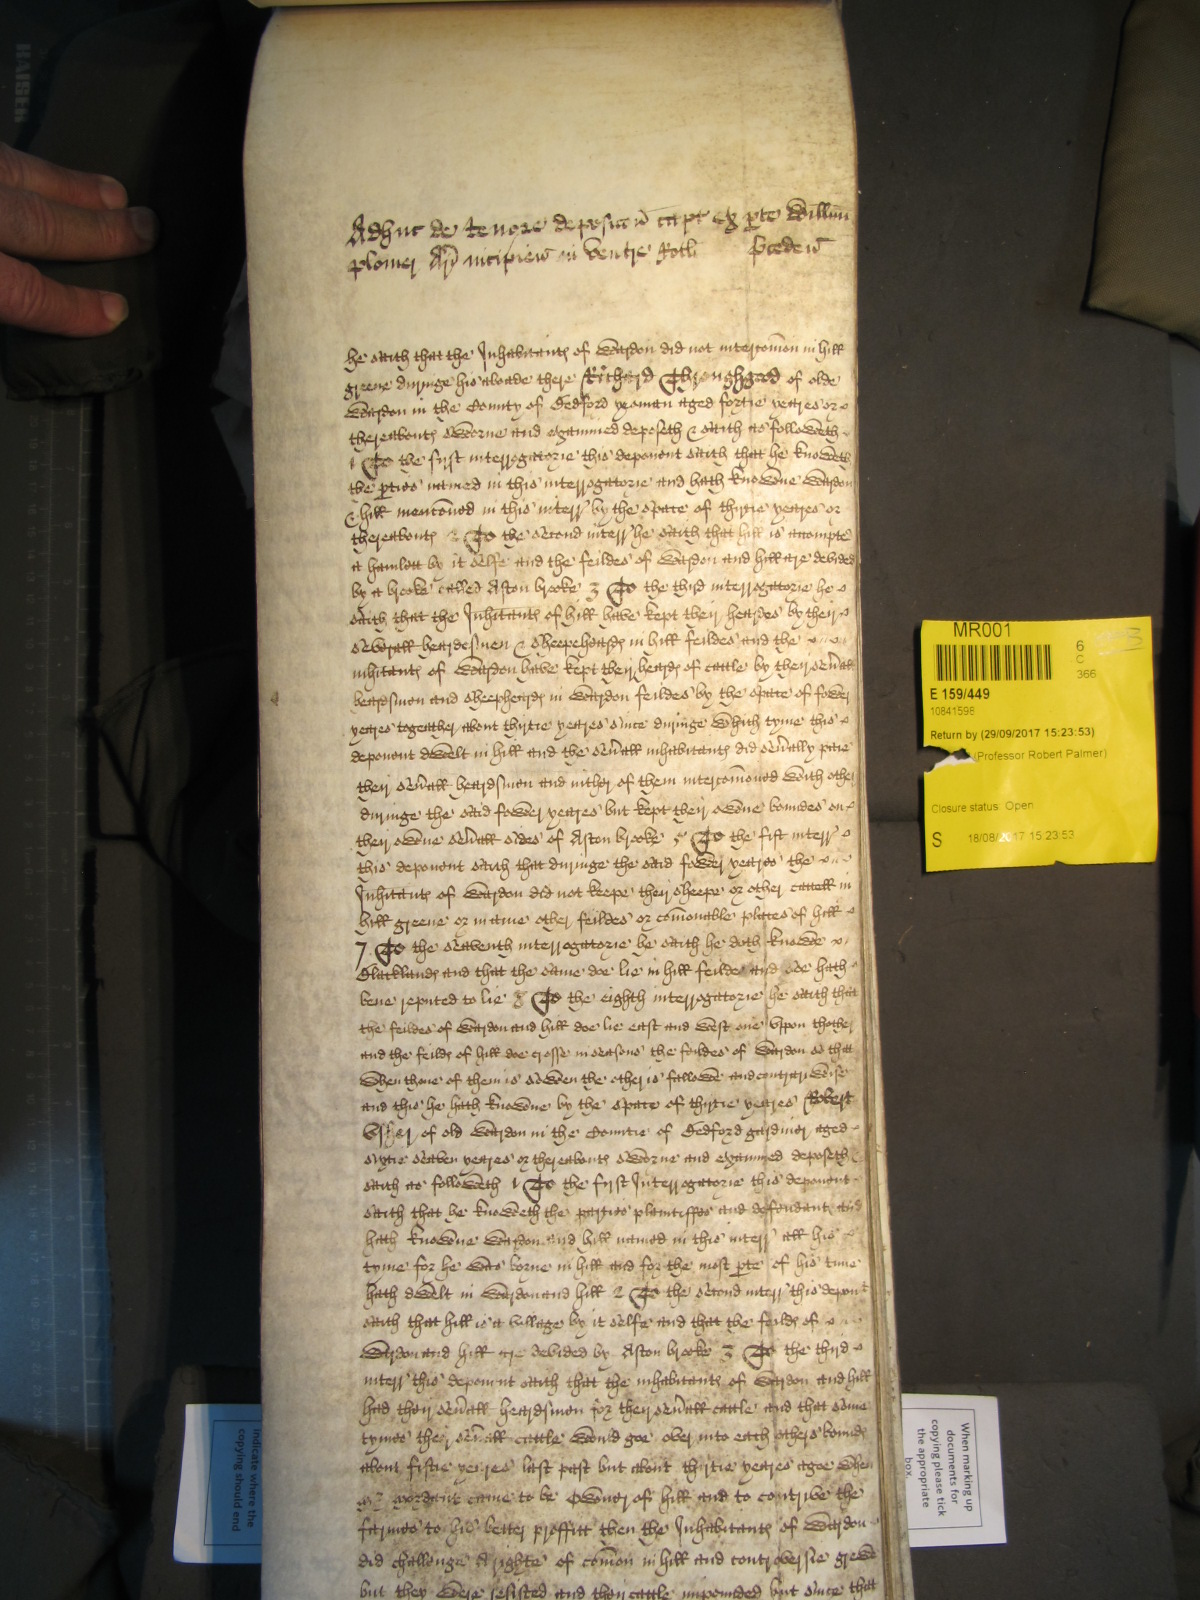 Adhuc de tenore deposicōn capt ex pte Willmi
plomer Ar incipien in ventre Rotli pceden
he saith that the Inhabitants of Wardon did not intercomon in hill
greene duringe his aboade there Richard Thoroughgood of olde
Wardon in the County of Bedford yeoman aged fortie yeares or
thereabouts sworne and examined deposeth & saith as followeth
1 To the first interrogatorie this deponent saith that he knoweth
the pties named in this interrogatorie and hath knowne Wardon
& hill menconed in this interr by the space of thirtie yeares or
thereabouts 2 To the second interr he saith that hill is accompted
a hamlett by it selfe and the feildes of Wardon and hill are devided
by a brooke called Aston brooke 3 To the third interrogatorie he
saith that the Inhitants of hill have kept their heardes by their
severall heardesmen & sheepheards in hill feildes and the
inhitants of Wardon have kept their heards of cattle by their sevall
heardsman and sheepheards in Wardon feildes by the space of fower
yeares togeather about thirtie yeares since duringe which tyme this
deponent dwelt in hill and the sevall inhabitants did sevally paie
their sevall heardsman and nither of them intercomoned with other
duringe the said fower yeares but kept their owne boundes on
their owne sevall sides of Aston brooke 5 To the fift interr
this deponent saith that duringe the said fower yeares the
Inhitants of Wardon did not keepe their sheepe or other cattell in
hill greene or in anie other feildes or comonable places of hill
7 To the seaventh interrogatorie he saith he doth knowe
Blacklands and that the same doe lie in hill feildes and soe hath
bene reputed to lie 8 To the eighth interrogatorie he saith that
the feildes of Wardon and hill doe lie east and west one vppon thother
and the feilds of hill doe crosse in seasons the feildes of Wardon so that
when thone of them is sowen the other is fallowe and contrariwise
and this he hath knowne by the space of thirtie yeares Robert
Vsher of old Wardon in the Countie of Bedford gardiner aged
sixtie seaven yeares or thereabouts sworne and examined deposeth
saith as followeth 1 To the first Interrogatorie this deponent
saith that he knoweth the parties plaintiffes and defendant and
hath knowne Wardon and hill named in this interr all his
tyme for he was borne in hill and for the most pte of his time
hath dwelt in Wardon and hill 2 To the second interr this depont
saith that hill is a village by it selfe and that the feilds of
Wardon and hill are devided by Aston brooke 3 To the third
interr this deponent saith that the inhabitants of Wardon and hill
had their sevall heardsmen for their sevall cattle and that some
tymes their sevall cattle would goe over into each others bounds
about fiftie yeares last past but about thirtie yeares agoe when
mr mordant came to be Owner of hill and to contrive the
farmes to his better proffitt then the Inhabitants of Wardon
did challenge A righte of comon in hill and controversie grewe
but they were resisted and their cattle impounded but since that
MR001
6
C
366
E 159/449
10841598
Return by (29/09/2017 15:23:53)
(Professor Robert Palmer)
Closure status: Open
S 18/08/2017 15:23:53
When marking up
documents for
copying please tick
the appropriate
box.
indicate where the
copying should end
KAISER